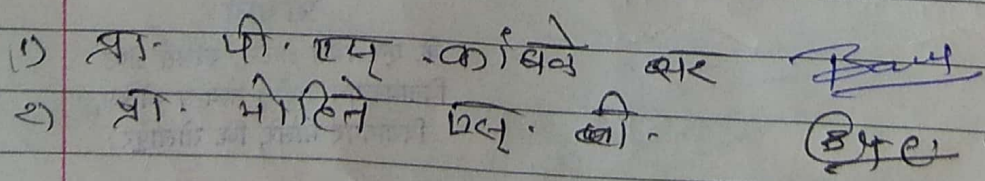 १) प्रा. पी. एम. कांबळे सर
२) प्रा. मोहिते एल. बी.